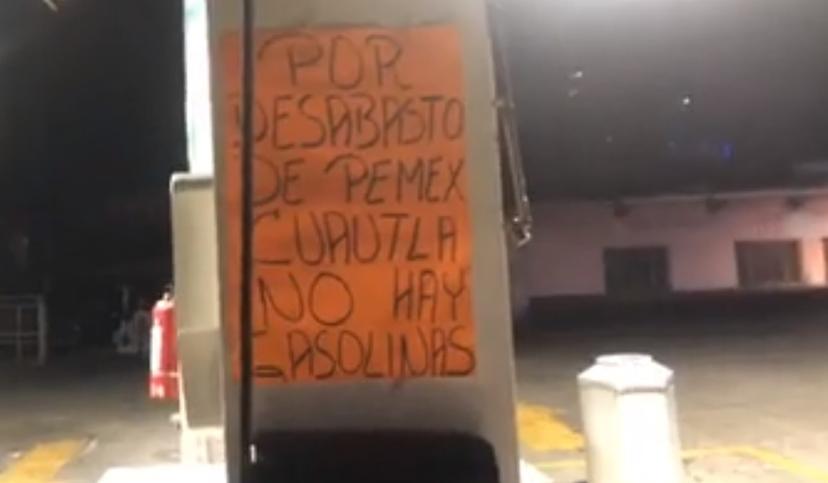 POR
DESABASTO
DE PEMEX
CUAUTLA
NO HAY
GASOLINAS